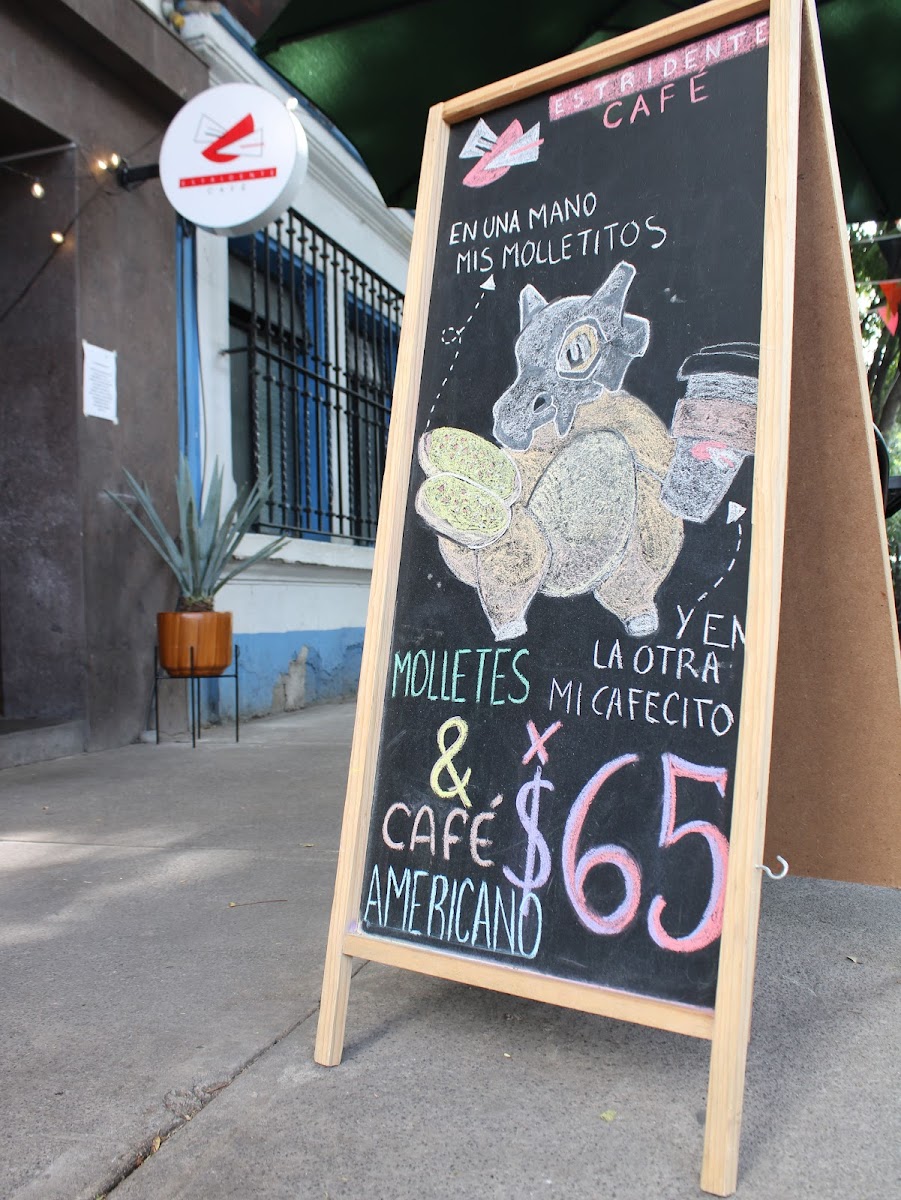 ESTRIDENTE
CAFÉ
ESTRIDENTE
CAFÉ
EN UNA MANO
MIS MOLLETITOS
Y EN
LA OTRA
MI CAFECITO
MOLLETES
&
CAFÉ
AMERICANO
X
$65